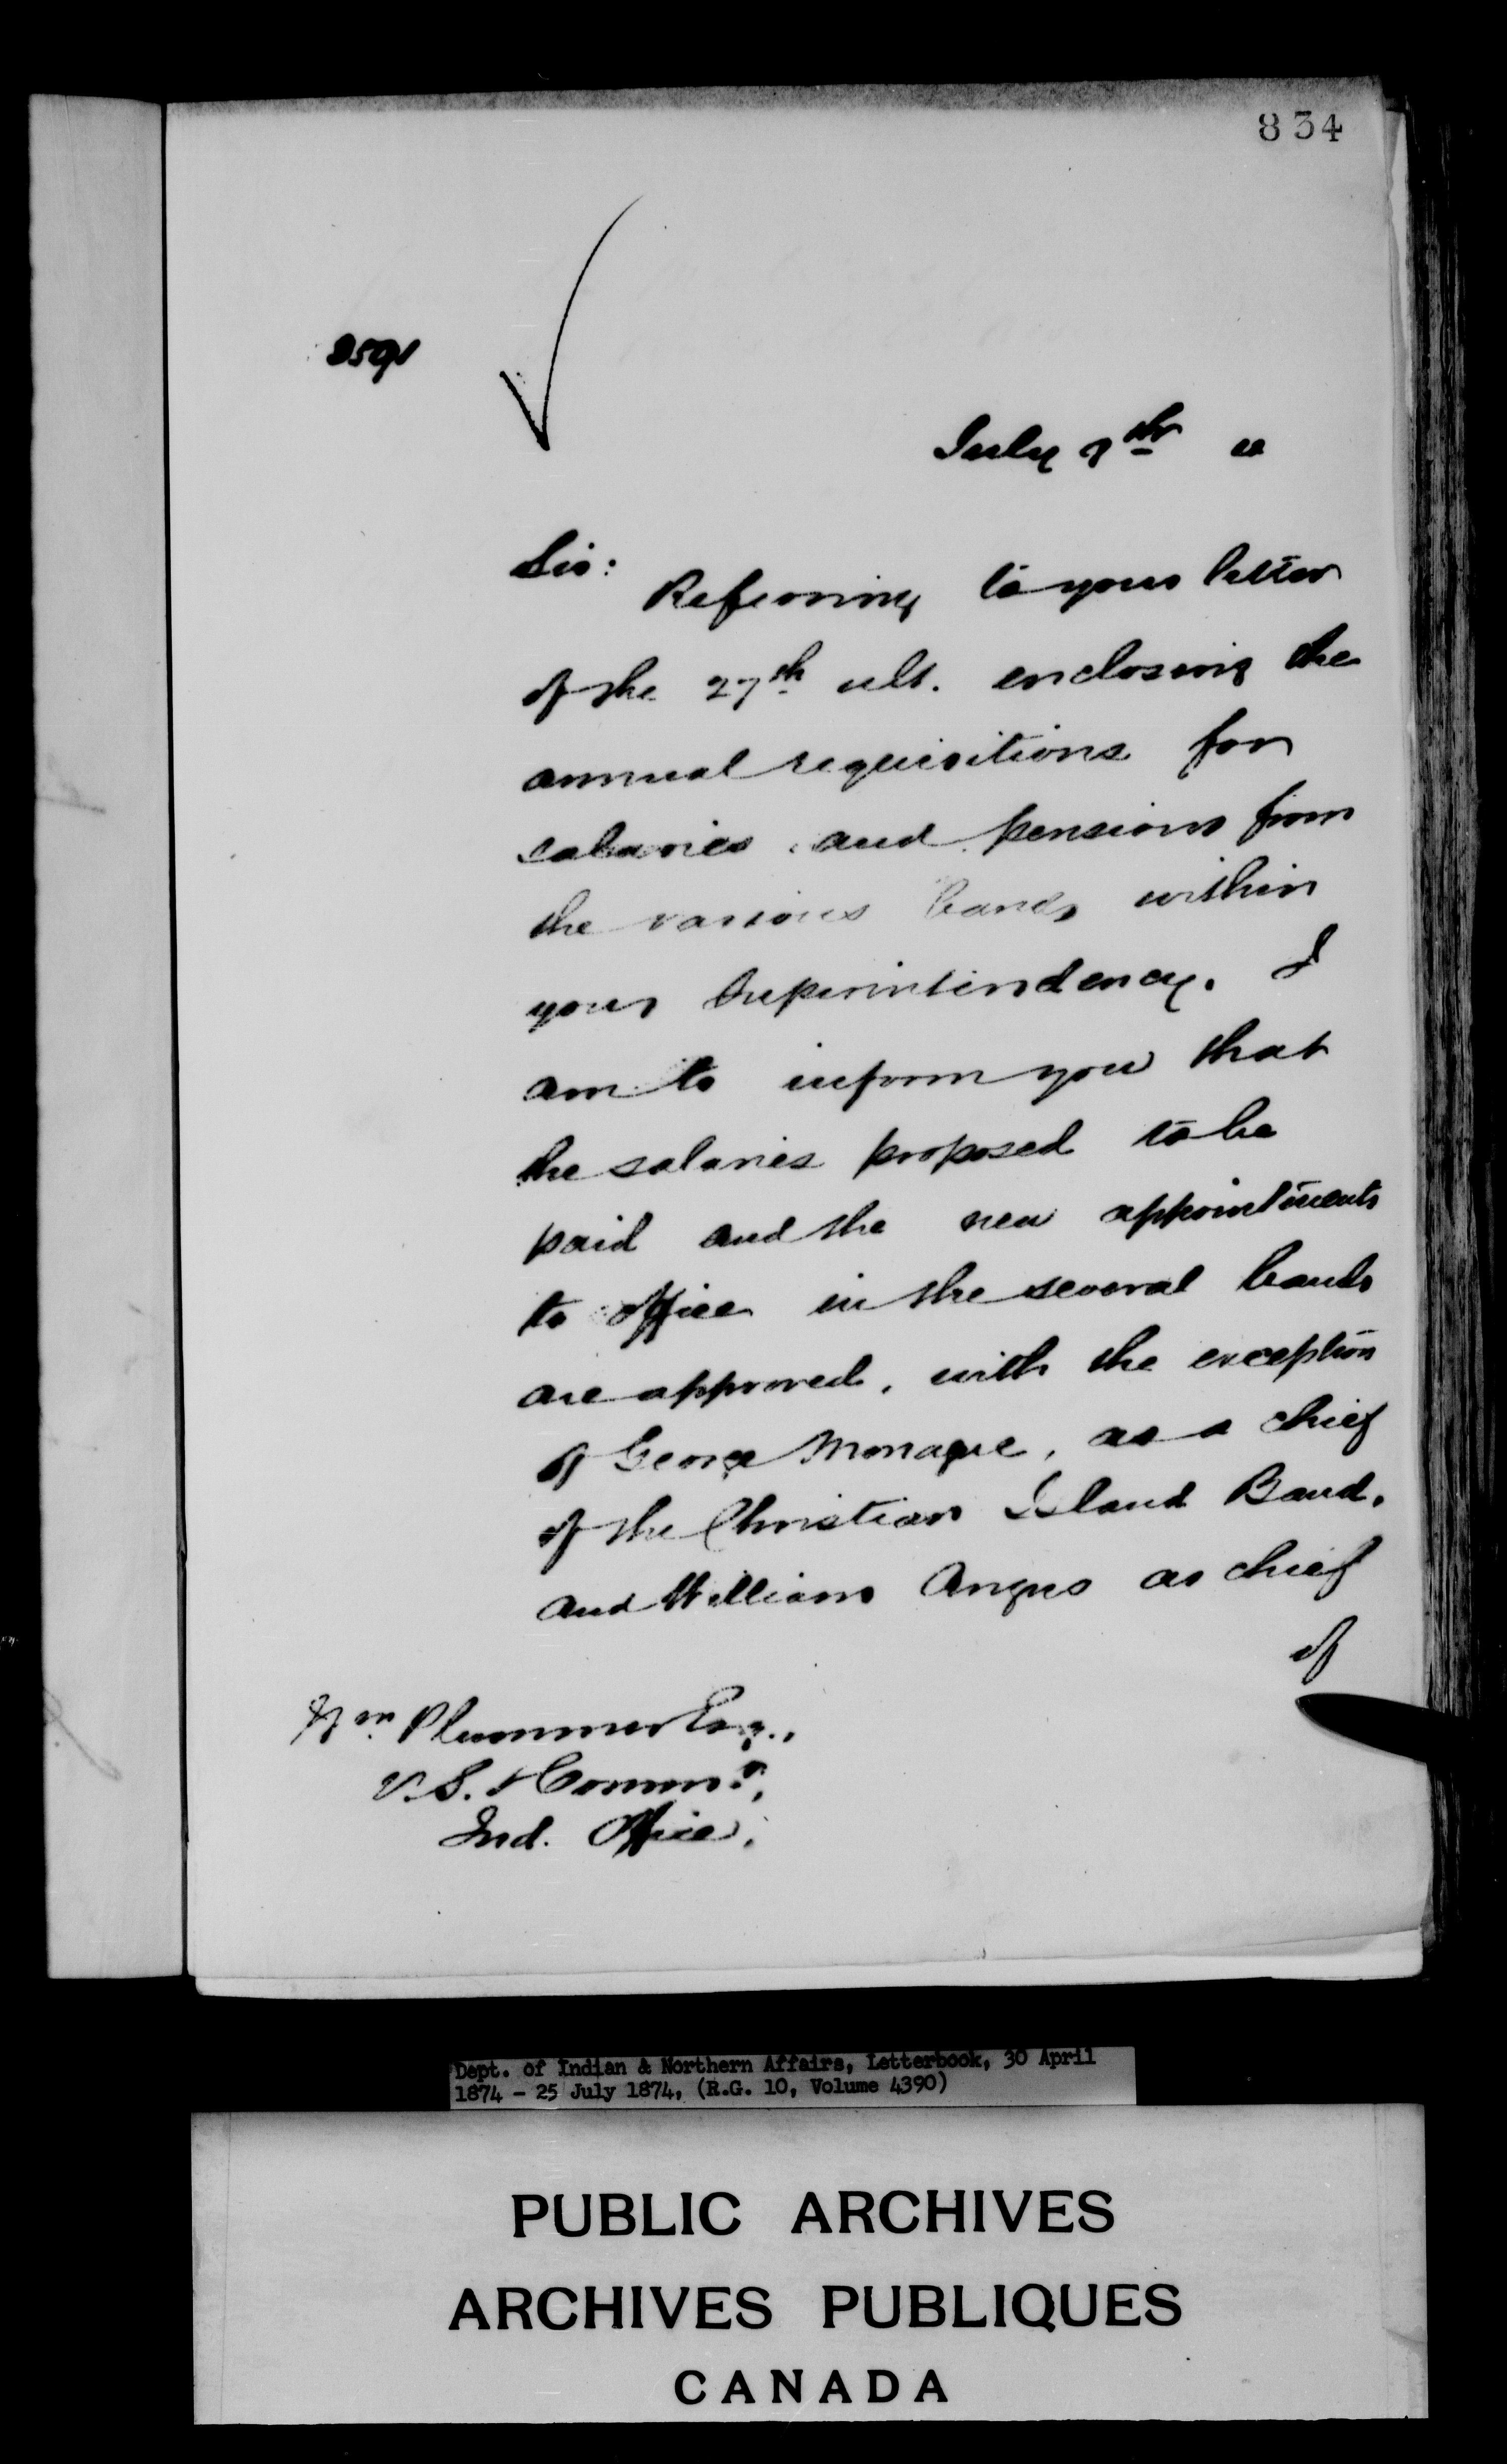 834
July 9th
Sir:
Referring to your letter
of the 27th ult. enclosing the
annual requisitions for
salaries and pensions from
the various bands within
your Superintendency. I
am to inform you that
the salaries proposed to be
paid and the new appointments
to office in the several bands
are approved, with the exception
of George Monague, as a chief
of the Christian Island Band,
and William Angus as chief
of
Wm. Plummer Esq.,
V.S. & Commr.,
Ind. Office.
Dept. of Indian & Northern Affairs, Letterbook, 30 April
1874 - 25 July 1874, (R.G. 10, Volume 4390)
PUBLIC ARCHIVES
ARCHIVES PUBLIQUES
CANADA